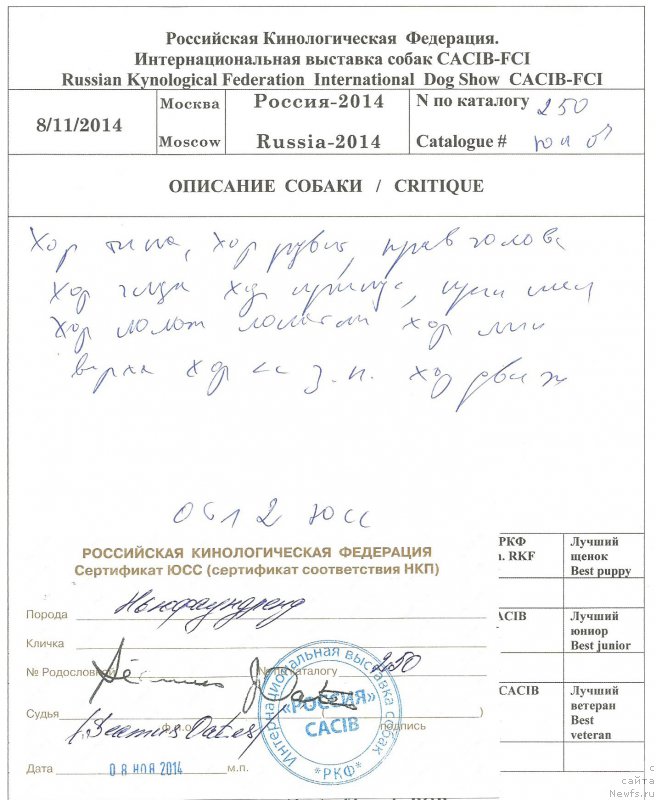 Российская Кинологическая Федерация.
Интернациональная выставка собак CACIB-FCI
Russian Kynological Federation International Dog Show CACIB-FCI
8/11/2014
Москва
Moscow
Россия-2014
Russia-2014
N по каталогу 250
Catalogue # юн
ОПИСАНИЕ СОБАКИ / CRITIQUE
Хор типа, хор прав голова
Хор глаза хор
Хор полож лопатки хор лин
верха хор з.п. хор движ
отл 2 ЮСС
РОССИЙСКАЯ КИНОЛОГИЧЕСКАЯ ФЕДЕРАЦИЯ
Сертификат ЮСС (сертификат соответствия НКП)
Порода Ньюфаундленд
Кличка
№ Родословной № по каталогу 250
Судья
(Seamus Oates)
ф.и.о. подпись
Дата 08 НОЯ 2014 м.п.
Интернациональная выставка собак
«РОССИЯ»
CACIB
*РКФ*
РКФ
. RKF
Лучший
щенок
Best puppy
ACIB
Лучший
юниор
Best junior
CACIB
Лучший
ветеран
Best
veteran
с
сайта
Newfs.ru